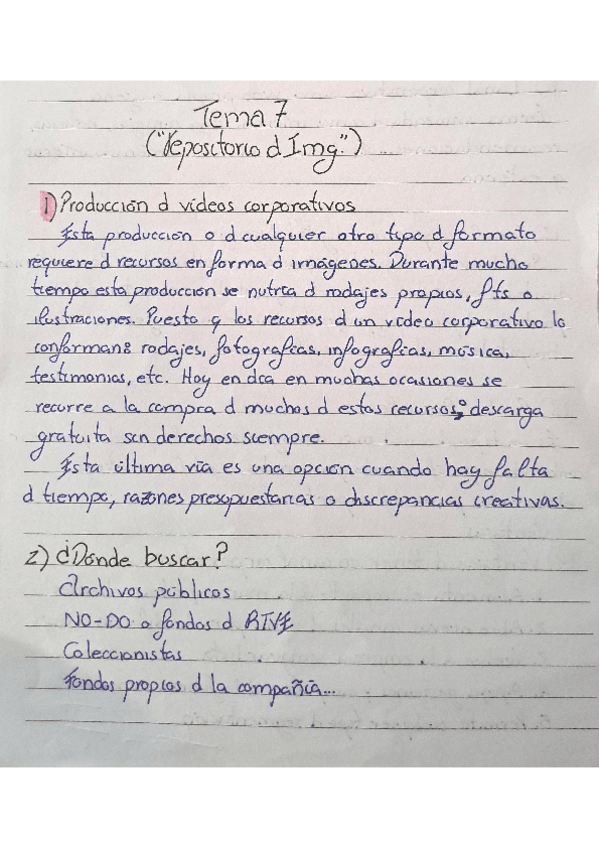 Tema 7
("repositorio d Img.")
1) Producción d vídeos corporativos
Esta producción o d cualquier otro tipo d formato
requiere d recursos en forma d imágenes. Durante mucho
tiempo esta producción se nutría d rodajes propios, fts o
ilustraciones. Puesto q los recursos d un vídeo corporativo lo
conforman: rodajes, fotografías, infografías, música,
testimonios, etc. Hoy en día en muchas ocasiones se
recurre a la compra d muchos d estos recursos, o descarga
gratuita sin derechos siempre.
Esta última vía es una opción cuando hay falta
d tiempo, razones presupuestarias o discrepancias creativas.
2) ¿Dónde buscar?
Archivos públicos
NO-DO o fondos d RTVE
Coleccionistas
Fondos propios d la compañía...